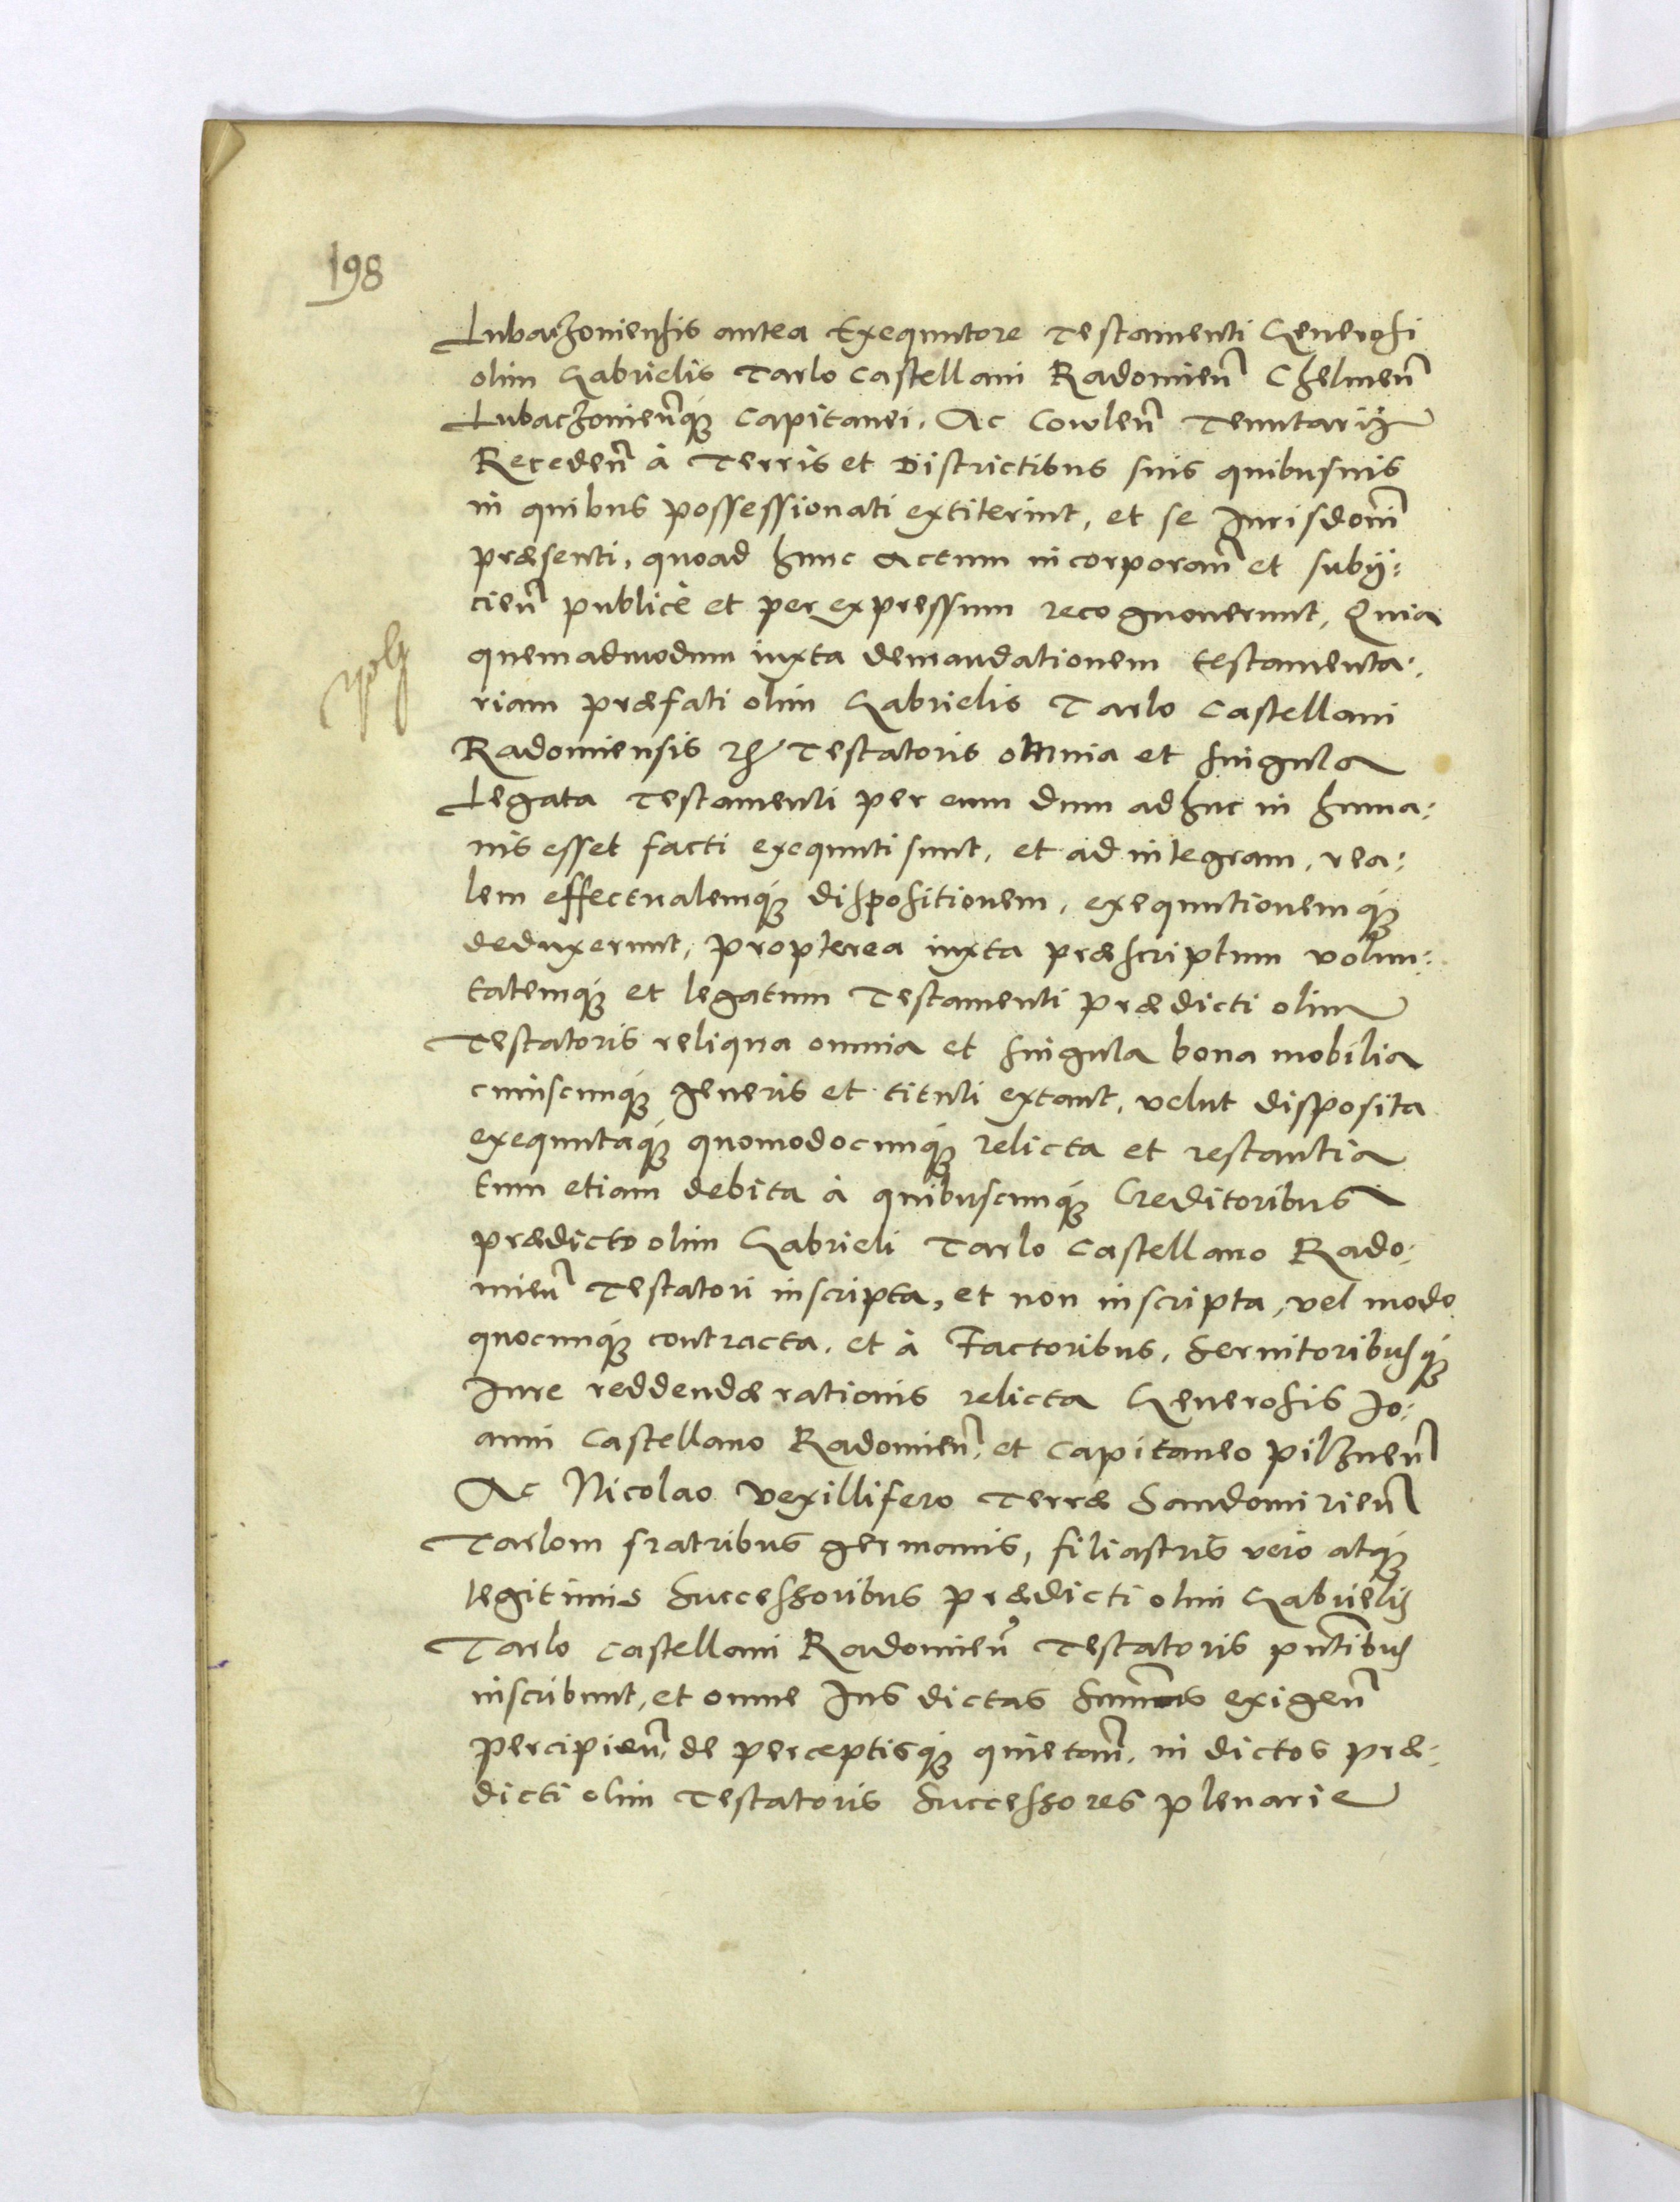 198
Lubaczoniensis antea Exequutore Testamenti Generosi
olim Gabrielis Tarlo Castellani Radomien̄ Chelmen̄
Lubaczonien̄q̨́ Capitanei. Ac Cowlen̄ Tenutarij
Receden̄ à Terris et Districtibus suis quibusuis
in quibus possessionati extiterint, et se Jurisdoni
præsenti, quoad hunc actum incorporan̄ et subij:
cien̄ publicè et per expressum recognouerunt, Quia
quemadmodum iuxta demandationem testamenta:
riam præfati olim Gabrielis Tarlo Castellani
Radomiensis Testatoris omnia et singula
Legata Testamenti per eum dum adhuc in huma:
nis esset facti exequuti sunt, et ad integram, rea:
lem effectualemq̨́ dispositionem, exequutionemq̨́
deduxerunt, propterea iuxta præscriptum volun:
tatemq̨́ et legatum Testamenti prædicti olim
Testatoris reliqua omnia et singula bona mobilia
cuiuscunq̨́ generis et tituli extant, velut disposita
exequutaq̨́ quomodocunq̨́ relicta et restantia
tum etiam debita à quibuscunq̨́ Creditoribus
prædicto olim Gabrieli Tarlo Castellano Rado:
mien̄ Testatori inscripta, et non inscripta, vel modo
quocunq̨́ contracta. et à Factoribus, Seruitoribusq̨́
Jure reddendæ rationis relicta Generosis Jo:
anni Castellano Radomien̄, et Capitaneo Pilznen̄
Ac Nicolao Vexillifero Terræ Sandomirien̄
Tarlom fratribus germanis, filiastris verò atq̨́
legitimis Successoribus prædicti olim Gabrielis
Tarlo Castellani Radomien̄ Testatoris pn̄tibus
inscribunt, et omne Jus dictas Sum̄as exigen̄
percipien̄, de perceptisq̨́ quietan̄. in dictos præ:
dicti olim Testatoris Successores plenarie